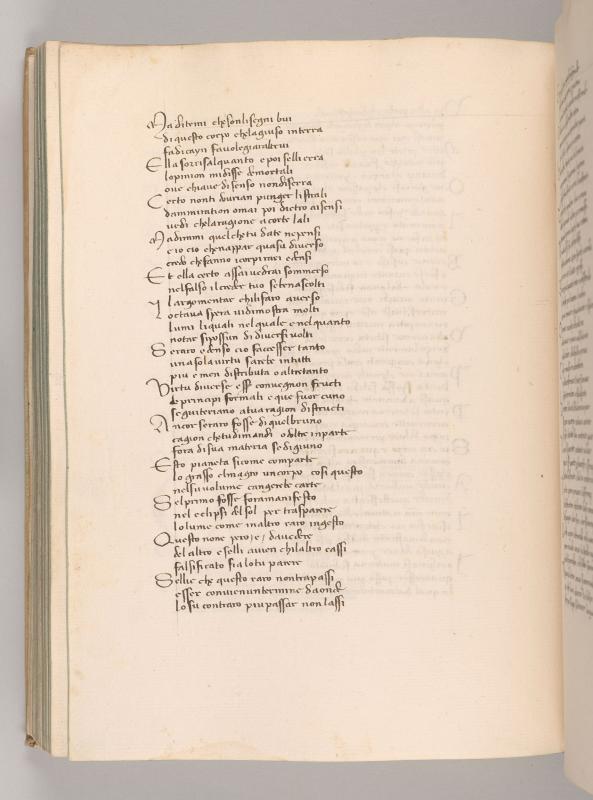 Ma ditemi che son li segni bui
di questo corpo che lagiuso in terra
fa di cayn favolegiar altrui
Ella sorrisalquanto e poi selli erra
lopinion midisse de mortali
ove chiave di senso nondiserra
Certo nonti dovrian punger li strali
damiration omai poi dietro aisensi
vedi chelaragione a corte lali
Madimmi quelchetu date nepensi
e io cio chenappar quasu diverso
credo chefanno icorpi rari edensi
Et ella certo assai vedrai sommerso
nelfalso ilcreder tuo sebenascolti
largomentar chilifaro averso
Loctava spera vidimostra molti
lumi liquali nelquale e nelquanto
notar sipossun di diversi volti
Seraro edenso cio facesser tanto
una sola virtu sarebe intutti
piu e men distributa o altretanto
Virtu diverse esser convegnon fructi
de principi formali e que fuor cuno
seguiteriano atua ragion distructi
Ancor seraro fosse di quelbruno
cagion chetudimandi o doltre inparte
fora di sua materia se digiuno
Esto pianeta si come comparte
lo grasso elmagro un corpo cosi questo
nelsuo volume cangerebe carte
Selprimo fosse foramanifesto
nel eclipsi del sol per trasparere
lo lume come inaltro raro ingesto
Questo none pero e davedere
del altro e selli avien chilaltro cassi
falsificato fia lotu parere
Selli e che questo raro nontrapassi
esser convien un termine da onde
lo su contraro piu passar non lassi